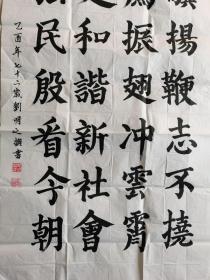 揚鞭志不撓
振翅冲雲霄
和諧新社會
民殷看今朝
乙酉年七十六歲劉明之撰書